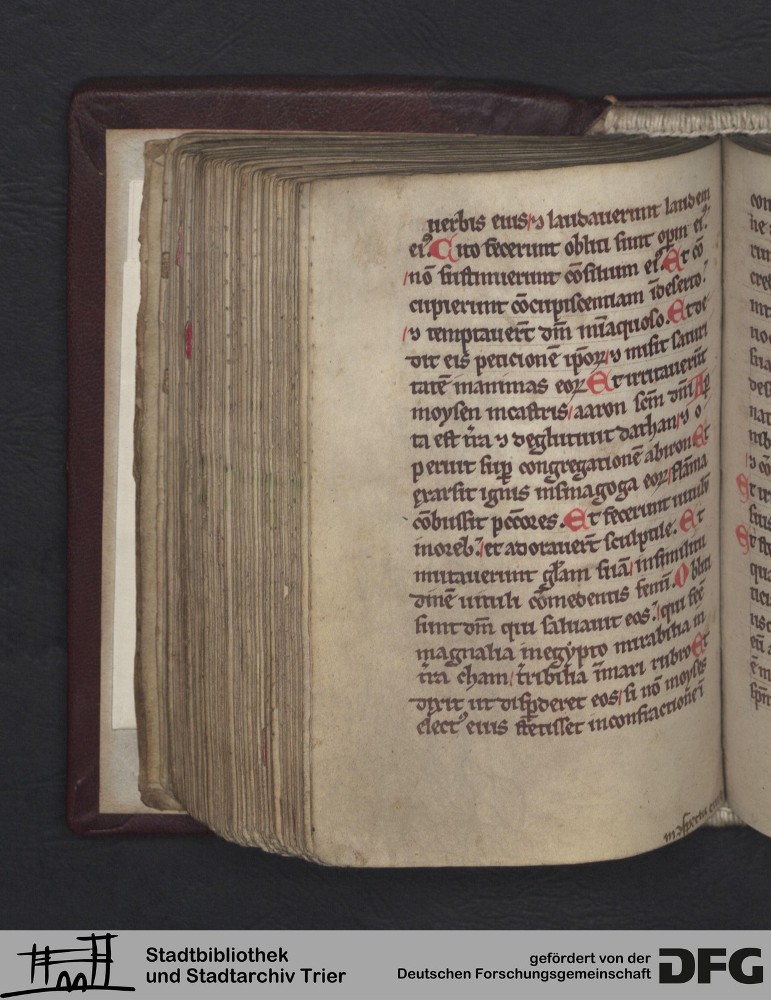 uerbis eius ⁊ laudauerunt laudem
ei⁹. Cito fecerunt obliti sunt oꝑm ei⁹.
nō sustinuerunt cōsilium ei⁹ Et cō
cupierunt cōcupiscentiam īdeserto.
⁊ temptauert̄ dm̄ īnaquoso. Et de
dit eis peticionē ip̄oꝝ ⁊ misit saturi
tatē inanimas eoꝝ Et irritauerūt
moysen incastris aaron scm̄ dn̄i Aꝑ
ta est tr̄a ⁊ deglutiuit dathan ⁊ o
peruit suꝑ congregationē abiron Et
exarsit ignis insinagoga eoꝝ flāma
cōbussit pcc̄ores. Et fecerunt uitulū
inoreb. et adorauert̄ sculptile. Et
mutauerunt gl̄am suā insimilitu
dinē uituli comedentis fenū. Obliti
sunt dm̄ qui saluauit eos. qui fec̄
magnalia inegypto mirabilia in
tr̄a cham tr̄ibilia īmari rubro Et
dixit ut disꝑderet eos si nō moyses
elect⁹ eius stetisset inconfractione ī
Stadtbibliothek
und Stadtarchiv Trier
gefördert von der
Deutschen Forschungsgemeinschaft
DFG